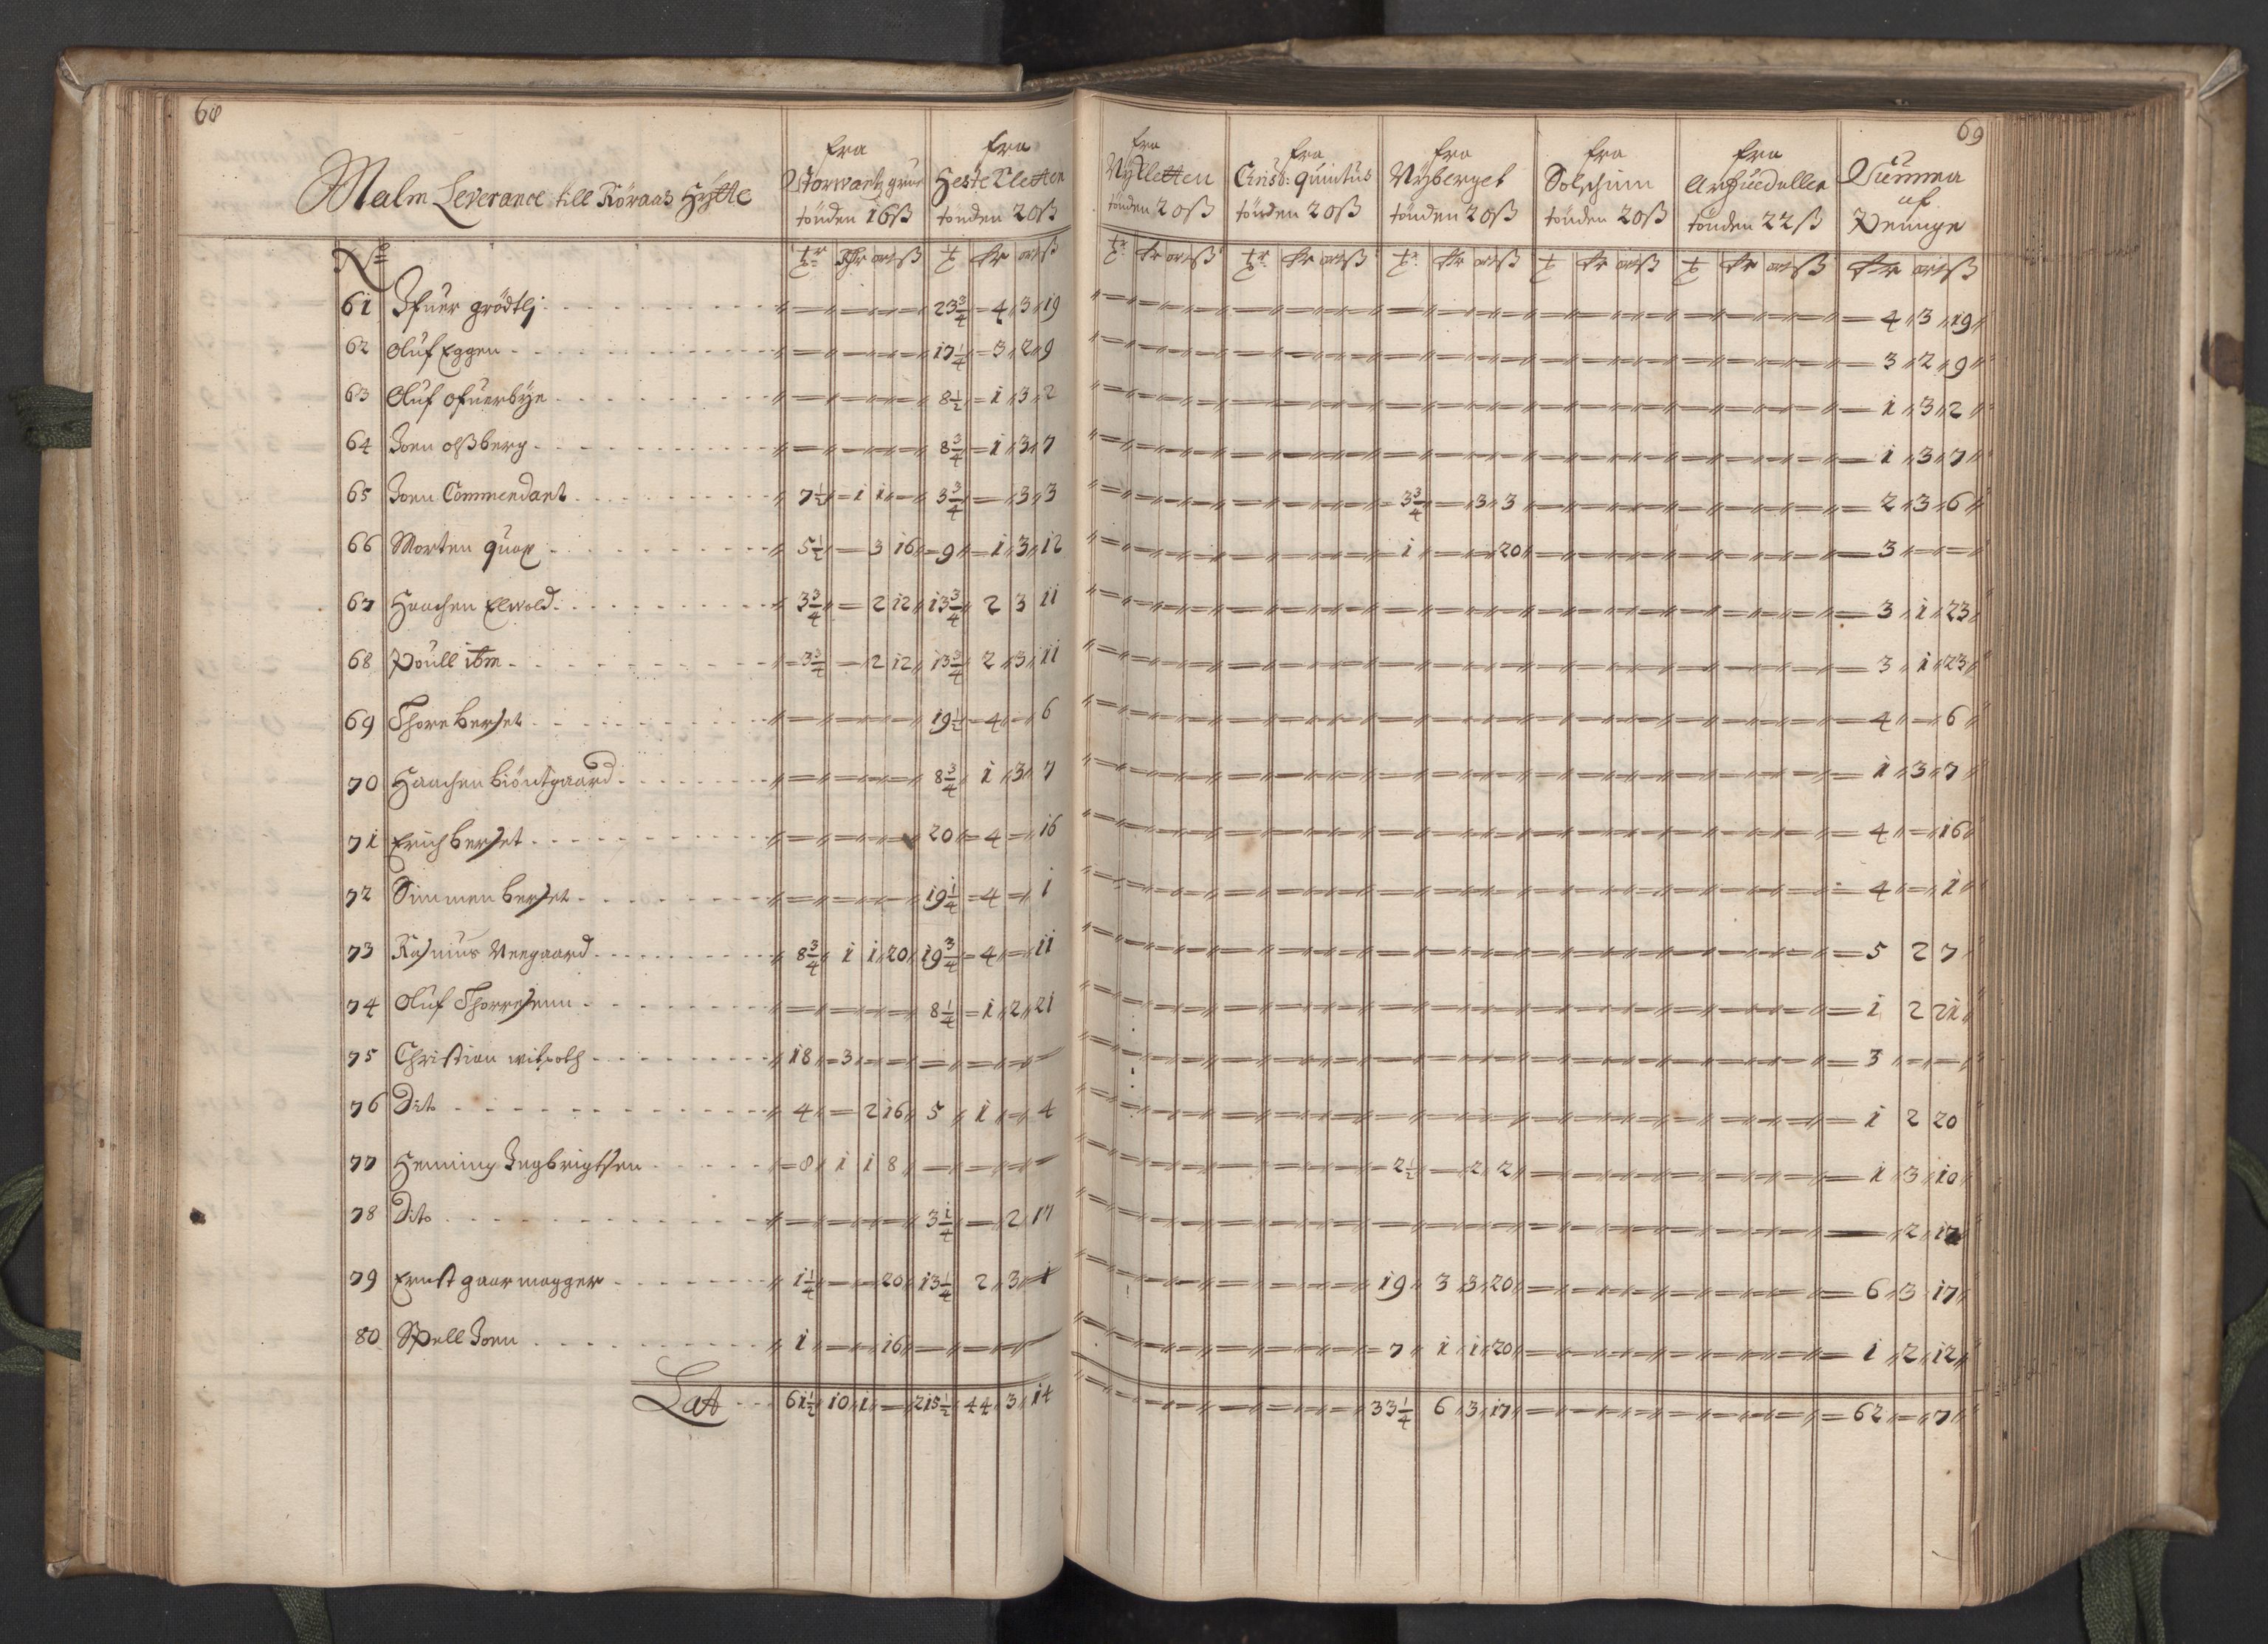 68
69
Malm Leverance till Röraas Hÿtte
fra Storwartz grue tönden 16ß
fra Hestekletten tönden 20ß
fra Nÿkletten tönden 20ß
fra Christ: quintus tönden 20ß
fra Nÿberget tönden 20ß
fra Solschinn tönden 20ß
fra Arfuedallen tönden 22ß
Summa af Peninge
No
61 Ifuer grödtlj 23 3/4 4 3 19 4 3 19
62 Oluf Eggen 17 1/4 3 2 9 3 2 9
63 Oluf ofuerbÿe 8 1/2 1 3 2 1 3 2
64 Joen olßberg 8 3/4 1 3 7 1 3 7
65 Joen Commendant 7 1/2 1 1 3 3/4 3 3 3 3/4 3 3 2 3 6
66 Morten quap 5 1/2 3 16 9 1 3 12 1 20 3
67 Haachen Elwold 3 3/4 2 12 13 3/4 2 3 11 3 1 23
68 Poull ibm 3 3/4 2 12 13 3/4 2 3 11 3 1 23
69 Thore berset 19 1/2 4 6 4 6
70 Haachen biöntgaard 8 3/4 1 3 7 1 3 7
71 Erich berset 20 4 16 4 16
72 Simmen berset 19 1/4 4 1 4 1
73 Rasmus Neegaard 8 3/4 1 1 20 19 3/4 4 11 5 2 7
74 Oluf Thoresenn 8 1/4 1 2 21 1 2 21
75 Christian witpoth 18 3 3
76 Dito 4 2 16 5 1 4 1 2 20
77 Henning Ingbrigtsen 8 1 1 8 2 1/2 2 2 1 3 10
78 Dito 3 1/4 2 17 2 17
79 Ernst gaar magger 1 1/4 20 13 1/4 2 3 1 19 3 3 20 6 3 17
80 Spell Joen 1 16 7 1 1 20 1 2 12
Lat 61 1/2 10 1 215 1/2 44 3 14 33 1/4 6 3 17 62 7